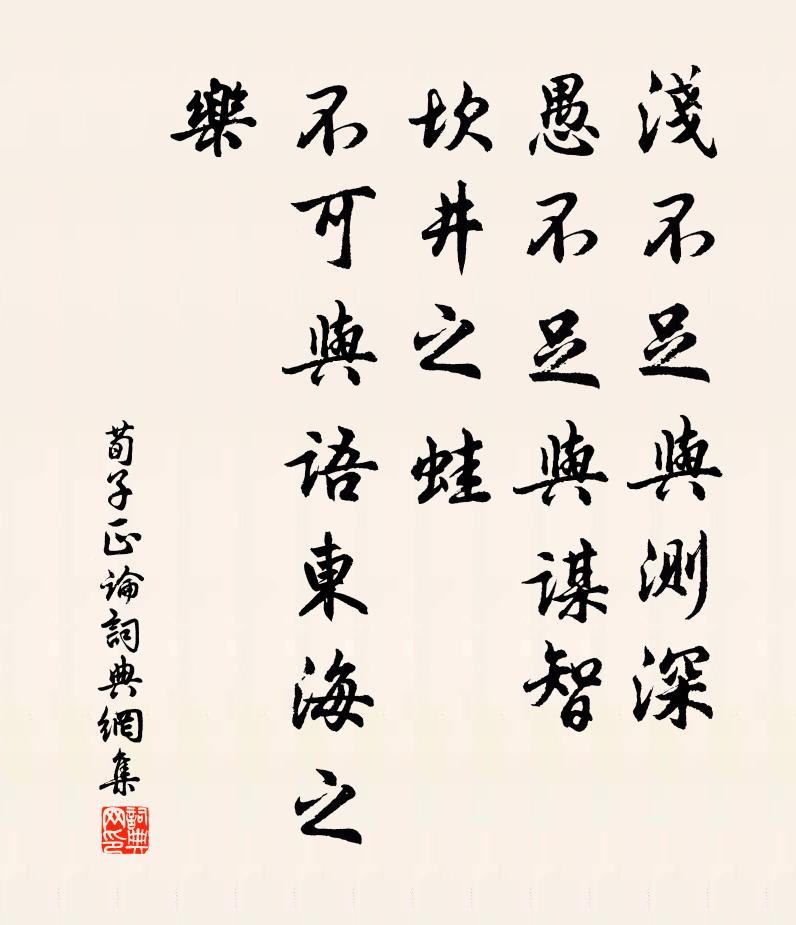 淺不足與測深
愚不足與謀智
坎井之蛙
不可與語東海之
樂
荀子正論詞典網集
詞典網印